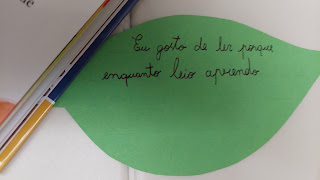 Eu gosto de ler porque
enquanto leio aprendo